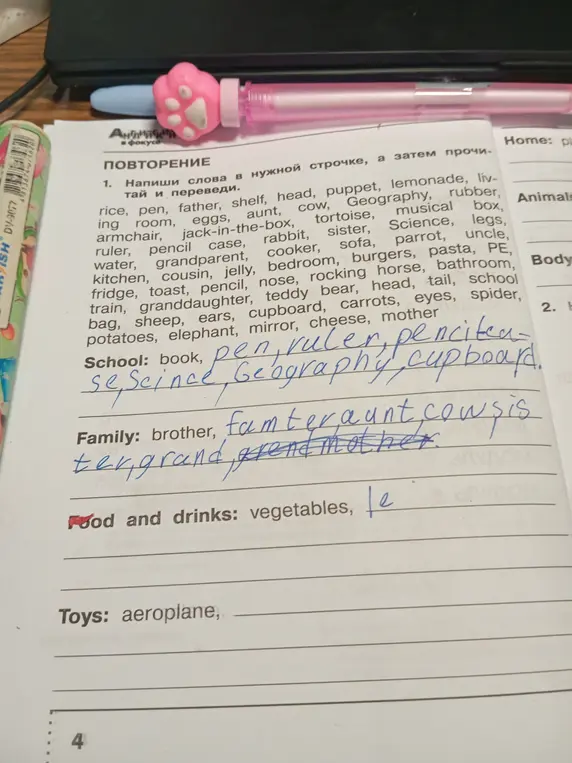 Английский
в фокусе
ПОВТОРЕНИЕ
1. Напиши слова в нужной строчке, а затем прочи-
тай и переведи.
rice, pen, father, shelf, head, puppet, lemonade, liv-
ing room, eggs, aunt, cow, Geography, rubber,
armchair, jack-in-the-box, tortoise, musical box,
ruler, pencil case, rabbit, sister, Science, legs,
water, grandparent, cooker, sofa, parrot, uncle,
kitchen, cousin, jelly, bedroom, burgers, pasta, PE,
fridge, toast, pencil, nose, rocking horse, bathroom,
train, granddaughter, teddy bear, head, tail, school
bag, sheep, ears, cupboard, carrots, eyes, spider,
potatoes, elephant, mirror, cheese, mother
School: book, pen, ruler, pencilca-
se, Scince, Geography, cupboard.
Family: brother, famter, aunt, cowsis
ter, grand, grendmother.
Food and drinks: vegetables, le
Toys: aeroplane,
4
Home:
Animal
Body
2.